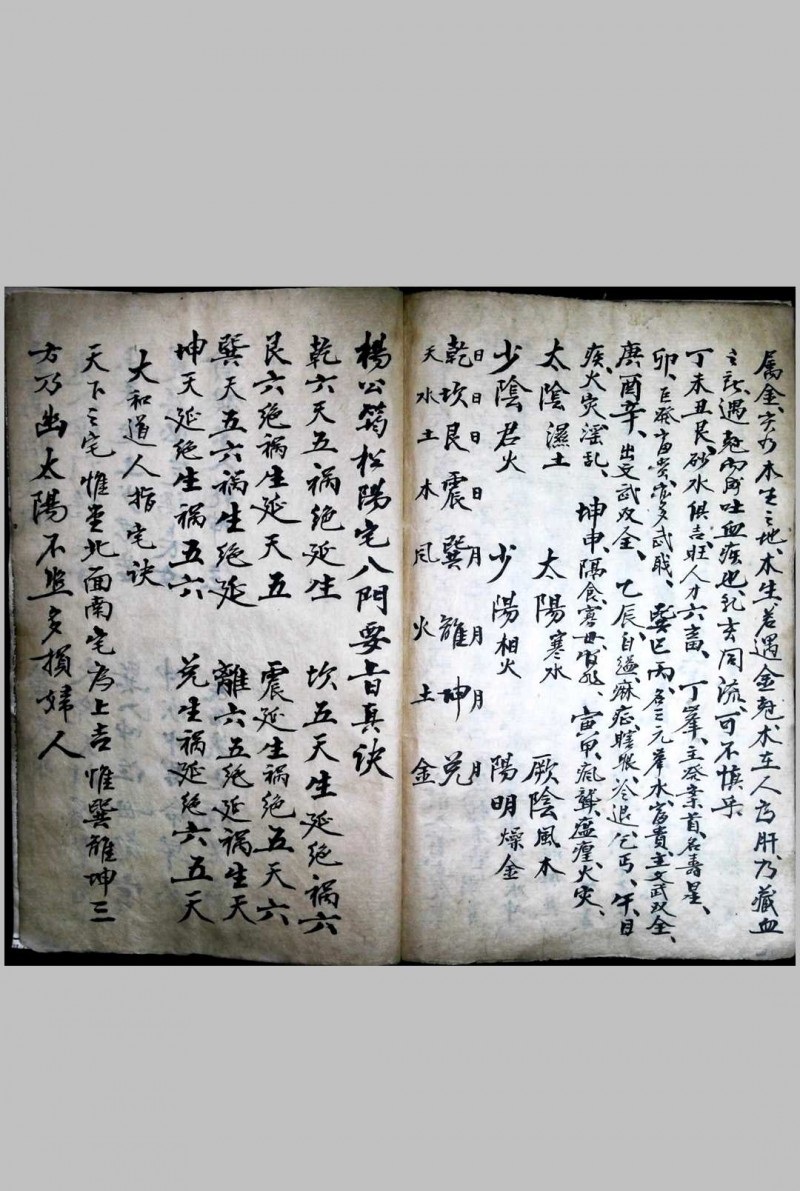 属金亥乃木生之地木生若遇金剋木在人為肝乃藏血
之診遇剋而成吐血疾也乳玄同流可不慎乎
丁未丑艮砂水俱吉旺人才六畜丁峯主癸案首名壽星
卯巨發富貴亦多武职巽巳丙名三元峯水富貴主文武双全
庚酉辛出文武双金乙辰自縊麻症瞎眼冷退乞丐午日
疾火灾淫乱坤申隔食寡母寅甲疯聾瘟瘴火灾
太陰濕土 太陽寒水 厥陰風木
少陰君火 少陽相火 陽明燥金
日日日日月月月月
乾坎艮震巽離坤兑
天水土木風火土金
楊公筠松陽宅八門要旨真诀
乾六天五禍绝延生 坎五天生延绝禍六
艮六绝禍生延天五 震延生禍绝五天六
巽天五六禍生绝延 離六五绝延禍生天
坤天延绝生禍五六 兑生禍延绝六五天
大和道人指宅诀
天下之宅惟坐北面南宅為上吉惟巽離坤三
方乃出太陽不照多損婦人